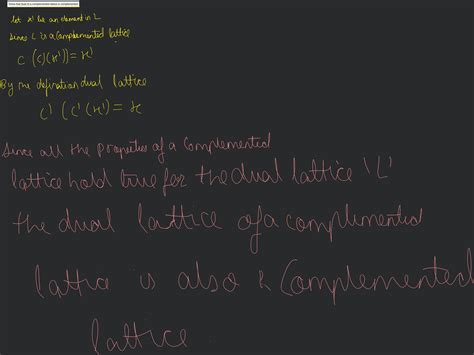 Show that dual of a complemented lattice is complemented
Let x' be an element in L
Since L is a Complemented lattice
C (C(x')) = x'
By the definition dual lattice
C' (C'(x') = x
Since all the properties of a Complemented
lattice hold true for the dual lattice 'L'
the dual lattice of a complimented
lattice is also a Complemented
lattice